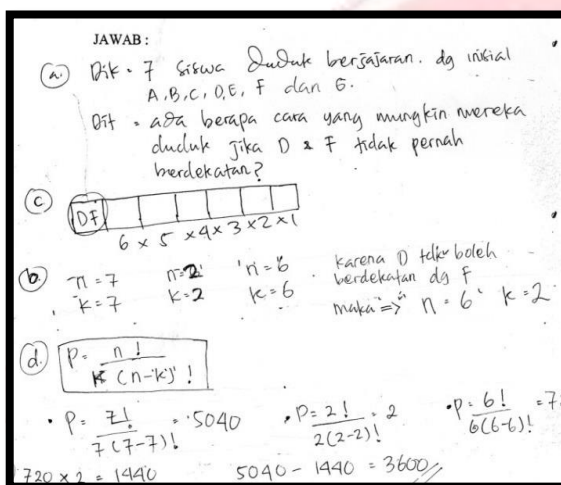 JAWAB :
a. Dik. 7 siswa duduk berjajaran. dg inisial
A, B, C, D, E, F dan G.
Dit. ada berapa cara yang mungkin mereka
duduk jika D & F tidak pernah
berdekatan?
c
DF
6 x 5 x 4 x 3 x 2 x 1
b. n = 7 n = 2 n = 6 karena D tdk boleh
berdekatan dg F
k = 7 k = 2 k = 6 maka => n = 6 k = 2
d. P = n! / K (n-k)!
• P = 7! / 7(7-7)! = 5040 • P = 2! / 2(2-2)! = 2 • P = 6! / 6(6-6)! = 7
720 x 2 = 1440 5040 - 1440 = 3600